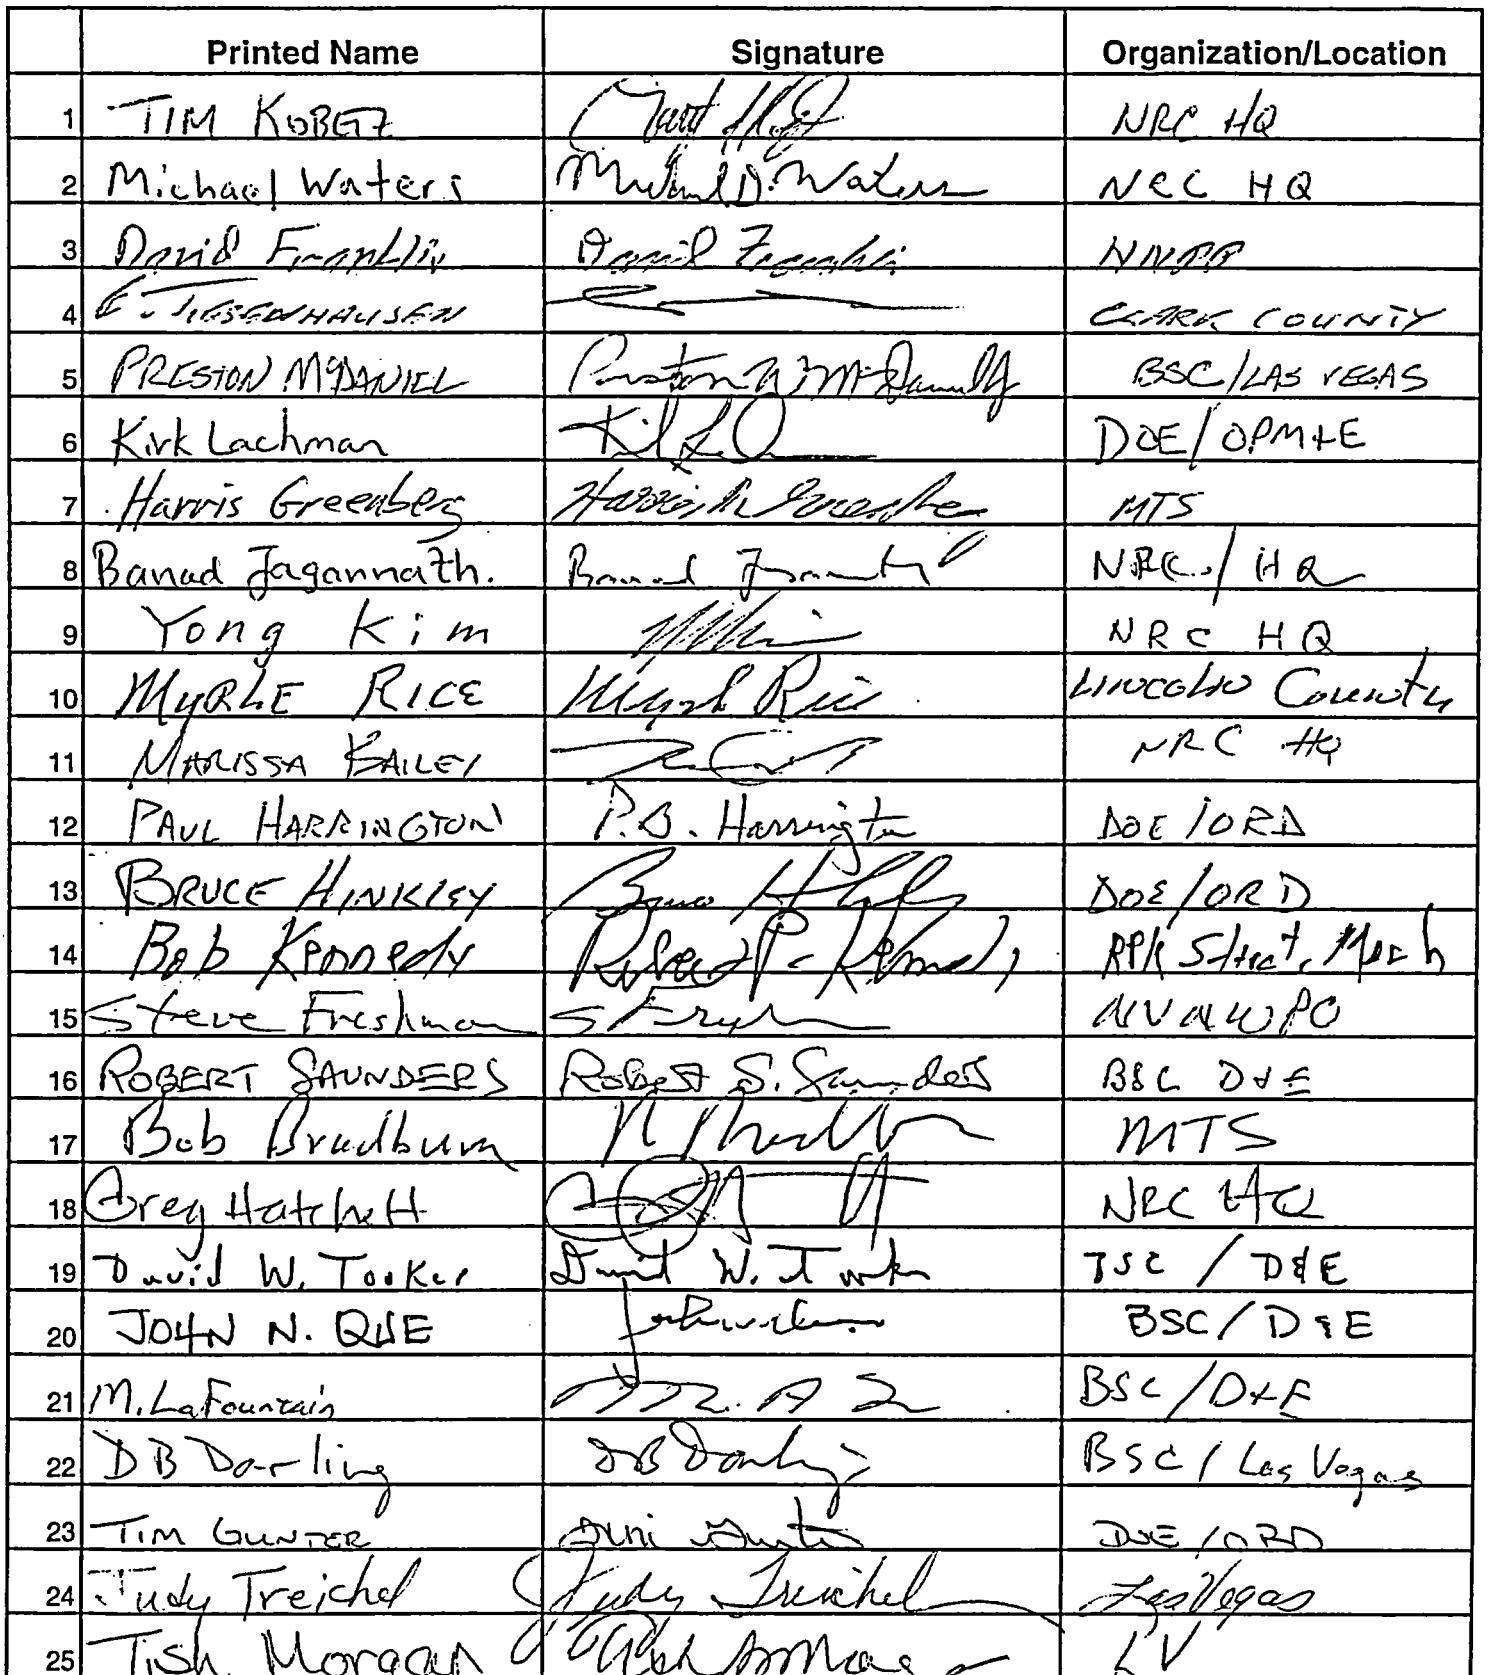 Printed Name Signature Organization/Location
1 TIM KOBETZ NRC HQ
2 Michael Waters Michael D. Waters NRC HQ
3 David Franklin David Franklin NNPP
4 E. TIESENHAUSEN CLARK COUNTY
5 PRESTON McDANIEL Preston McDaniel BSC/LAS VEGAS
6 Kirk Lachman DOE/OPM+E
7 Harris Greenberg Harris Greenberg MTS
8 Banad Jagannath. Banad Jagannath NRC/HQ
9 Yong Kim NRC HQ
10 MYRLE RICE Myrle Rice LINCOLN County
11 MARISSA BAILEY NRC HQ
12 PAUL HARRINGTON P.B. Harrington DOE/ORD
13 BRUCE HINKLEY DOE/ORD
14 Bob Kennedy Robert P. Kennedy RPK Struct. Mech
15 Steve Freshman NVNWPO
16 ROBERT SAUNDERS Robert S. Saunders BSC D&E
17 Bob Bradburn MTS
18 Greg Hatchett NRC HQ
19 David W. Tooker David W. Tooker BSC / D&E
20 JOHN N. QUE BSC/D&E
21 M. LaFountain BSC/D&E
22 DB Darling DB Darling BSC/Las Vegas
23 TIM GUNTER DOE/ORD
24 Judy Treichel Judy Treichel Las Vegas
25 Tish Morgan LV